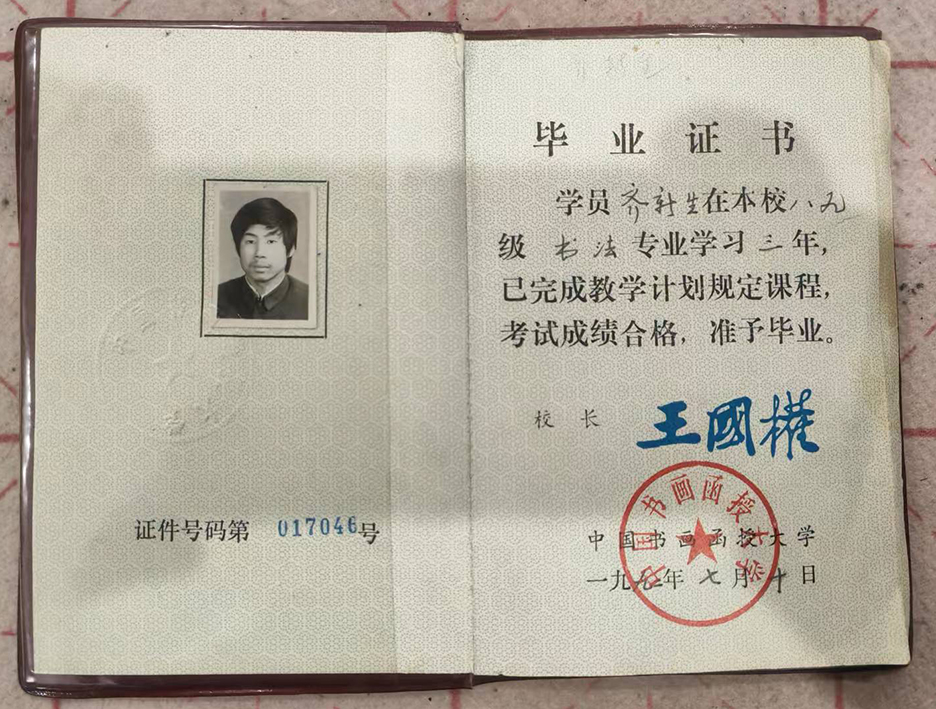 证件号码第 017046号
毕业证书
学员齐新生在本校八九
级书法专业学习三年，
已完成教学计划规定课程，
考试成绩合格，准予毕业。
校长 王國權
中国书画函授大学
中国书画函授大学
一九九二年七月十日